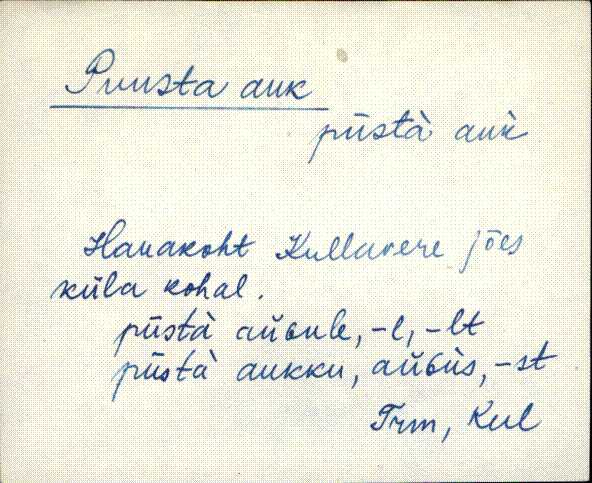 Puusta auk
pūstà auk̀
Hauakoht Kullavere jões
küla kohal.
pūstà aùGule, -l, -lt
pūstà aukku, aùGùs, -st
Trm, Kul